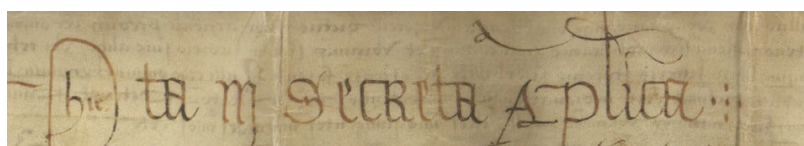 Hie. ta in Secreta Aplica